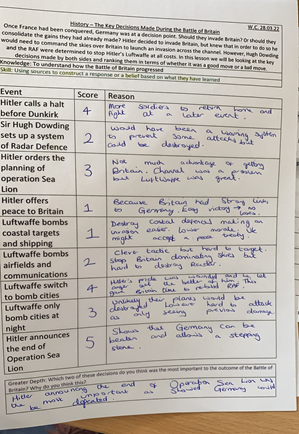 History – The Key Decisions Made During the Battle of Britain
W.C. 28.03.22
Once France had been conquered, Germany was at a decision point. Should they invade Britain? Or should they
consolidate the gains they had already made? Hitler decided to invade Britain, but knew that in order to do so he
would need to command the skies over Britain to launch an invasion across the channel. However, Hugh Dowding
and the RAF were determined to stop Hitler's Luftwaffe at all costs. In this lesson we will be looking at the key
decisions made by both sides and ranking them in terms of whether it was a good move or a bad move
Knowledge: To understand how the Battle of Britain progressed
Skill: Using sources to construct a response or a belief based on what they have learned
Event Score Reason
Hitler calls a halt before Dunkirk
4
More soldiers to return home and
fight at a later event.
Sir Hugh Dowding sets up a system of Radar Defence
2
Would have been a warning system
to prevent some attacks but
could be destroyed.
Hitler orders the planning of operation Sea Lion
3
Not much advantage of getting
Britain. Channel was a problem
but Luftwaffe was great.
Hitler offers peace to Britain
1
Because Britain had strong links
to Germany.
Luftwaffe bombs coastal targets and shipping
1
Destroy coastal defences making an
invasion easier. Lower morale, UK
might accept a peace treaty
Luftwaffe bombs airfields and communications
2
Clever tactic but hard to target.
Stop Britain dominating skies but
hard to destroy Radar.
Luftwaffe switch to bomb cities
4
Hitler's pride was wounded and he let
anger get the better of him. This
gave Britain time to rebuild RAF.
Luftwaffe only bomb cities at night
3
Unlikely their planes would be
destroyed however hard to attack
as only seeing previous damage.
Hitler announces the end of Operation Sea Lion
5
Shows that Germany can be
beaten and allows a stepping
stone.
Greater Depth: Which two of these decisions do you think was the most important to the outcome of the Battle of
Britain? Why do you think this?
Hitler announcing the end of Operation Sea Lion was
the most important as showed Germany could
be defeated.